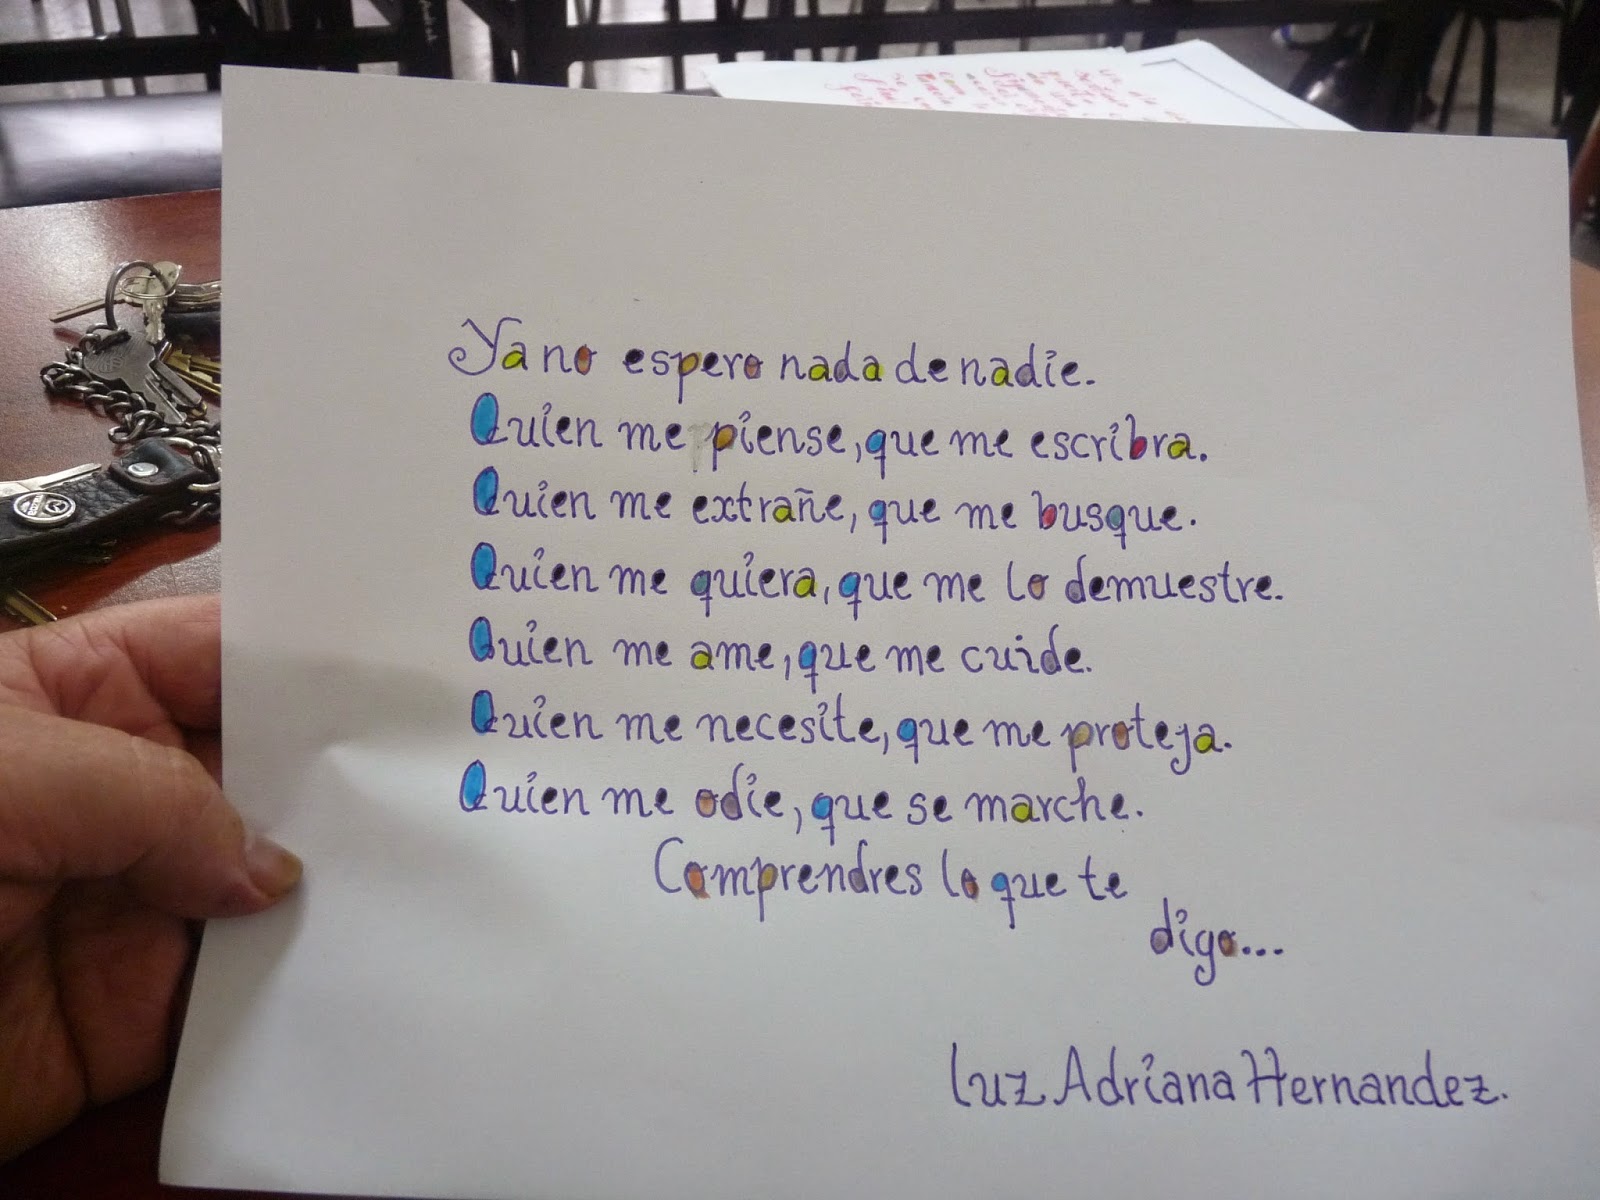 Ya no espero nada de nadie.
Quien me piense, que me escribra.
Quien me extrañe, que me busque.
Quien me quiera, que me lo demuestre.
Quien me ame, que me cuide.
Quien me necesite, que me proteja.
Quien me odie, que se marche.
Comprendres lo que te
digo...
Luz Adriana Hernandez.